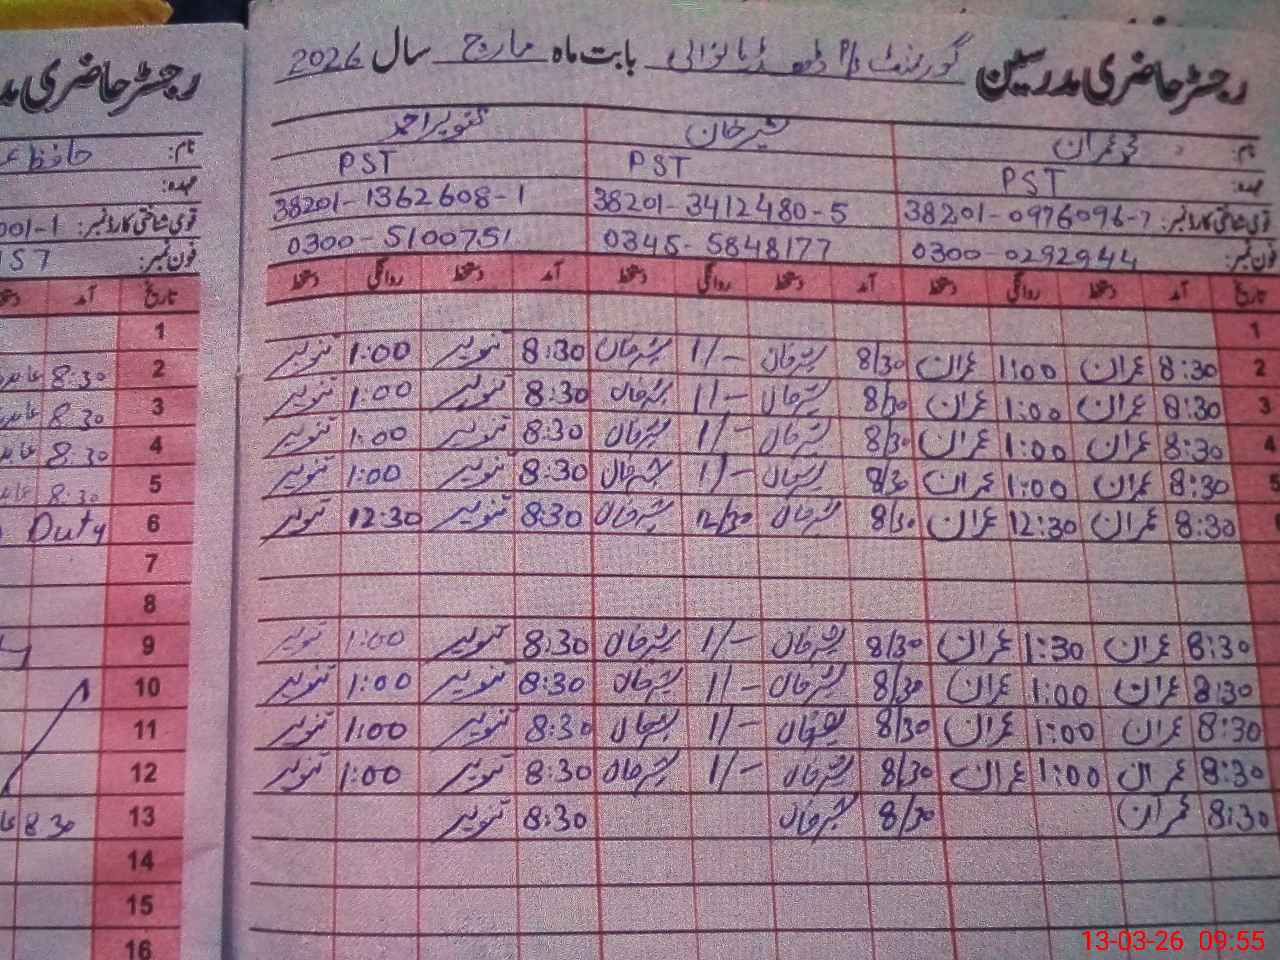 رجسٹر حاضری مدرسین گورنمنٹ بابت ماہ مارچ سال 2026
نام: عمران شیر خان تنویر احمد
عہدہ: PST PST PST
قومی شناختی کارڈ نمبر: 38201-0976096-7 38201-3412480-5 38201-1362608-1
فون نمبر: 0300-0292944 0345-5848177 0300-5100751
تاریخ آمد دستخط روانگی دستخط آمد دستخط روانگی دستخط آمد دستخط روانگی دستخط
1
2 8:30 عمران 1:00 عمران 8/30 شیرخان 1/- شیرخان 8:30 تنویر 1:00 تنویر
3 8:30 عمران 1:00 عمران 8/30 شیرخان 1/- شیرخان 8:30 تنویر 1:00 تنویر
4 8:30 عمران 1:00 عمران 8/30 شیرخان 1/- شیرخان 8:30 تنویر 1:00 تنویر
5 8:30 عمران 1:00 عمران 8/30 شیرخان 1/- شیرخان 8:30 تنویر 1:00 تنویر
8:30 عمران 12:30 عمران 8/30 شیرخان 12/30 شیرخان 8:30 تنویر 12:30 تنویر
8:30 عمران 1:30 عمران 8/30 شیرخان 1/- شیرخان 8:30 تنویر 1:00 تنویر
8:30 عمران 1:00 عمران 8/30 شیرخان 1/- شیرخان 8:30 تنویر 1:00 تنویر
8:30 عمران 1:00 عمران 8/30 شیرخان 1/- شیرخان 8:30 تنویر 1:00 تنویر
8:30 عمران 1:00 عمران 8/30 شیرخان 1/- شیرخان 8:30 تنویر 1:00 تنویر
8:30 عمران 8/30 شیرخان 8:30 تنویر
رجسٹر حاضری
نام: حافظ
عہدہ:
قومی شناختی کارڈ نمبر: 001-1
فون نمبر: 157
تاریخ آمد
1
2 8:30
3 8:30
4 8:30
5 8:30
6 Duty
7
8
9
10
11
12
13 8 30
14
15
16
13-03-26 09:55